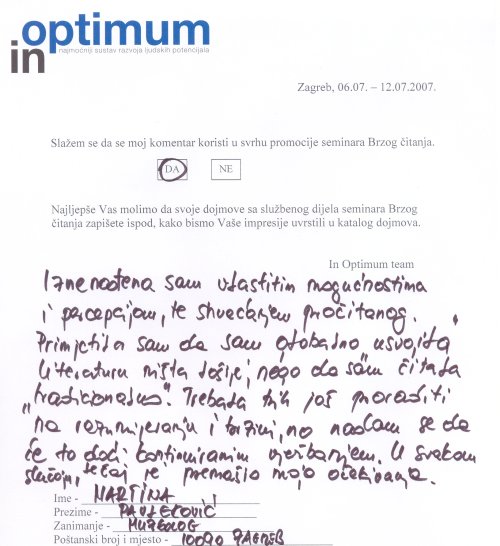 in optimum
najmoćniji sustav razvoja ljudskih potencijala
Zagreb, 06.07. – 12.07.2007.
Slažem se da se moj komentar koristi u svrhu promocije seminara Brzog čitanja.
DA NE
Najljepše Vas molimo da svoje dojmove sa službenog dijela seminara Brzog
čitanja zapišete ispod, kako bismo Vaše impresije uvrstili u katalog dojmova.
In Optimum team
Iznenađena sam vlastitim mogućnostima
i percepcijom, te shvaćanjem pročitanog.
Primjetila sam da sam globalno usvojila
literaturu ništa lošije, nego da sam čitala
"tradicionalno". Trebala bih još poraditi
na razumijevanju i brzini, no nadam se da
će to doći kontinuiranim vježbanjem. U svakom
slučaju, tečaj je premašio moja očekivanja.
Ime - MARTINA
Prezime - PAVLEKOVIĆ
Zanimanje - MUZEOLOG
Poštanski broj i mjesto - 10090 ZAGREB